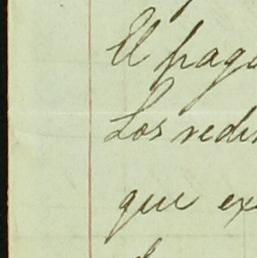 El paga
Los redi
que ex